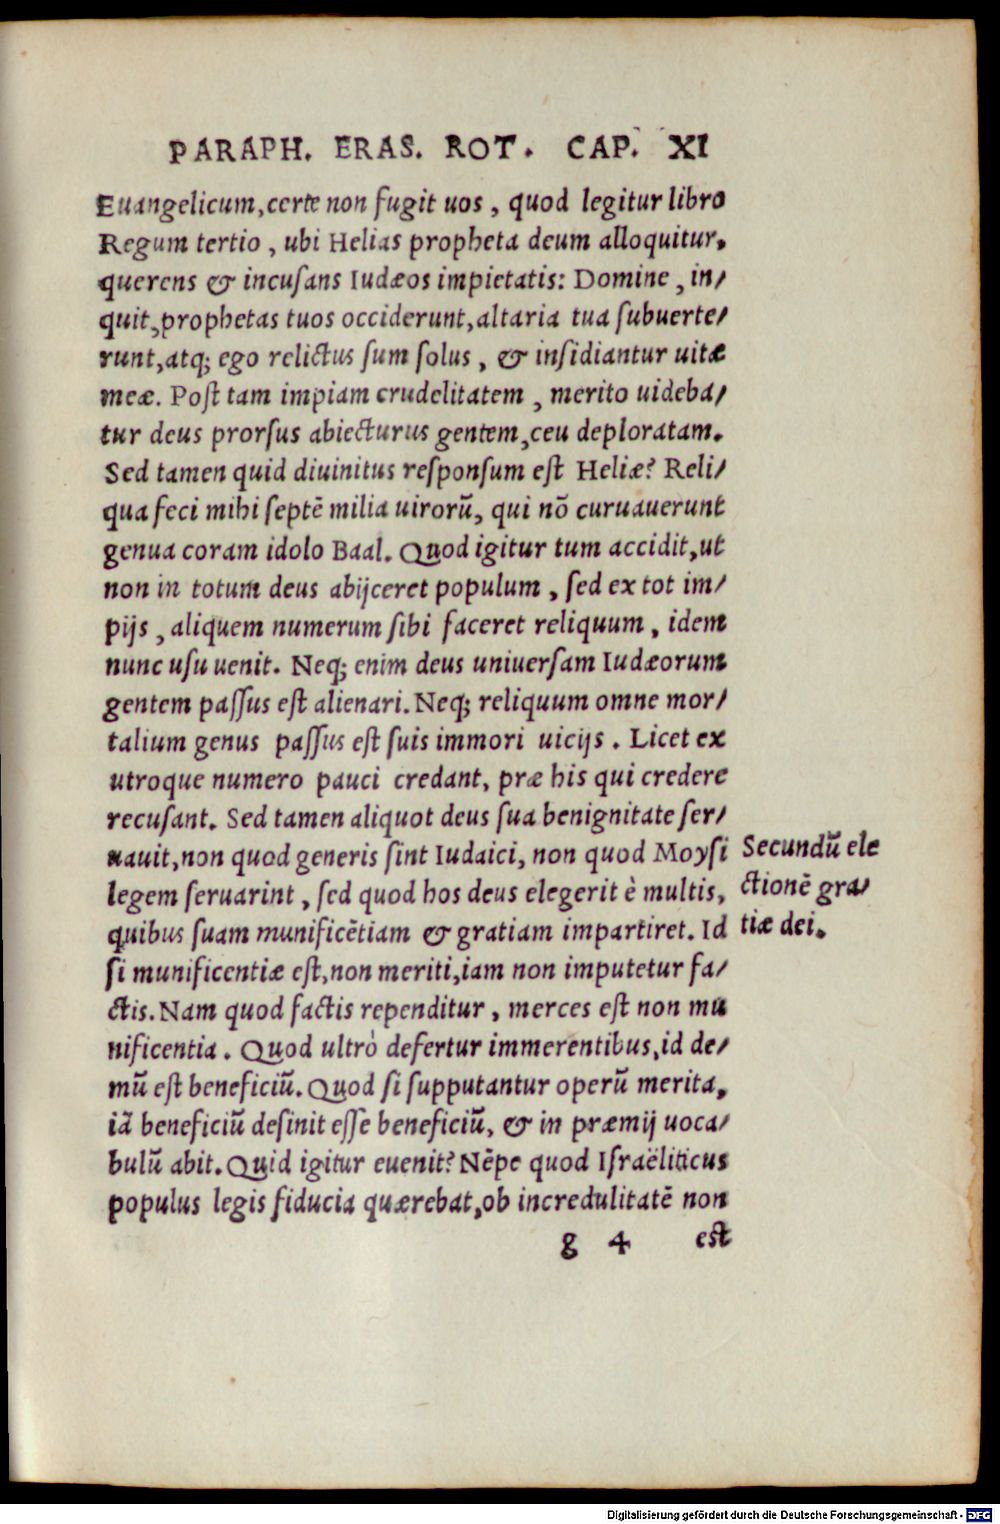 PARAPH. ERAS. ROT. CAP. XI
Euangelicum, certe non fugit uos, quod legitur libro
Regum tertio, ubi Helias propheta deum alloquitur,
querens & incusans Iudæos impietatis: Domine, in/
quit, prophetas tuos occiderunt, altaria tua subuerte/
runt, atq; ego relictus sum solus, & insidiantur uitæ
meæ. Post tam impiam crudelitatem, merito uideba/
tur deus prorsus abiecturus gentem, ceu deploratam.
Sed tamen quid diuinitus responsum est Heliæ? Reli/
qua feci mihi septē milia uirorū, qui nō curuauerunt
genua coram idolo Baal. Quod igitur tum accidit, ut
non in totum deus abijceret populum, sed ex tot im/
pijs, aliquem numerum sibi faceret reliquum, idem
nunc usu uenit. Neq; enim deus uniuersam Iudæorum
gentem passus est alienari. Neq; reliquum omne mor/
talium genus passus est suis immori uicijs. Licet ex
utroque numero pauci credant, præ his qui credere
recusant. Sed tamen aliquot deus sua benignitate ser/
uauit, non quod generis sint Iudaici, non quod Moysi
legem seruarint, sed quod hos deus elegerit è multis,
quibus suam munificētiam & gratiam impartiret. Id
si munificentiæ est, non meriti, iam non imputetur fa/
ctis. Nam quod factis rependitur, merces est non mu
nificentia. Quod ultrò defertur immerentibus, id de/
mū est beneficiū. Quod si supputantur operū merita,
iā beneficiū desinit esse beneficiū, & in præmij uoca/
bulū abit. Quid igitur euenit? Nēpe quod Israëliticus
populus legis fiducia quærebat, ob incredulitatē non
g 4 est
Secundū ele
ctionē gra/
tiæ dei.
Digitalisierung gefördert durch die Deutsche Forschungsgemeinschaft - DFG